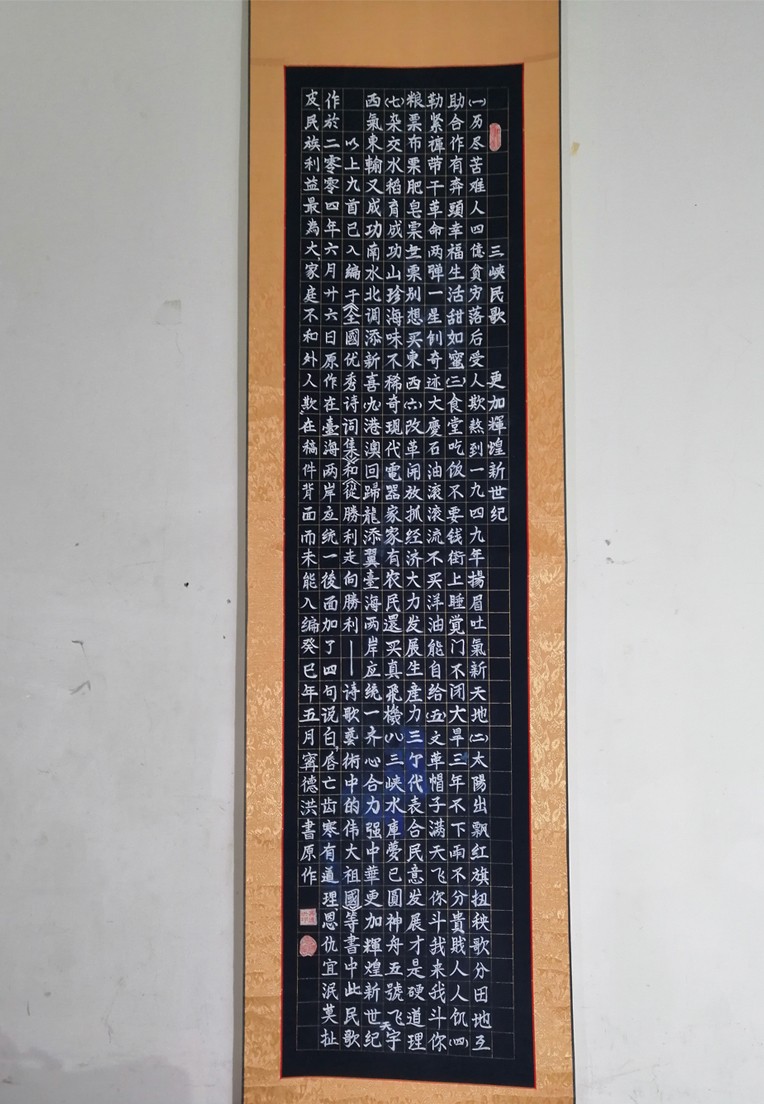 三峡民歌 更加輝煌新世纪
(一)历尽苦难人四億貧穷落后受人欺熬到一九四九年揚眉吐氣新天地(二)太陽出飘红旗扭秧歌分田地互
助合作有奔頭幸福生活甜如蜜(三)食堂吃饭不要钱街上睡觉门不闭大旱三年不下雨不分貴贱人人饥(四)
勒紧褲带干革命两弹一星创奇迹大慶石油滚滚流不买洋油能自给(五)文革帽子满天飞你斗我来我斗你
粮票布票肥皂票無票别想买東西(六)改革開放抓经济大力发展生産力三个代表合民意发展才是硬道理
(七)杂交水稻育成功山珍海味不稀奇现代電器家家有农民還买真飛機(八)三峡水庫夢已圆神舟五號飞天宇
西氣東輸又成功南水北调添新喜(九)港澳回歸龍添翼臺海两岸应统一齐心合力强中華更加輝煌新世纪
以上九首已入编于《全國优秀诗词集》和《從勝利走向勝利——诗歌藝術中的伟大祖國》等書中此民歌
作於二零零四年六月廿六日原作在臺海两岸应统一後面加了四句说白,唇亡齿寒有道理恩仇宜泯莫扯
皮,民族利益最為大,家庭不和外人欺,在稿件背面而未能入编癸巳年五月寗德洪書原作